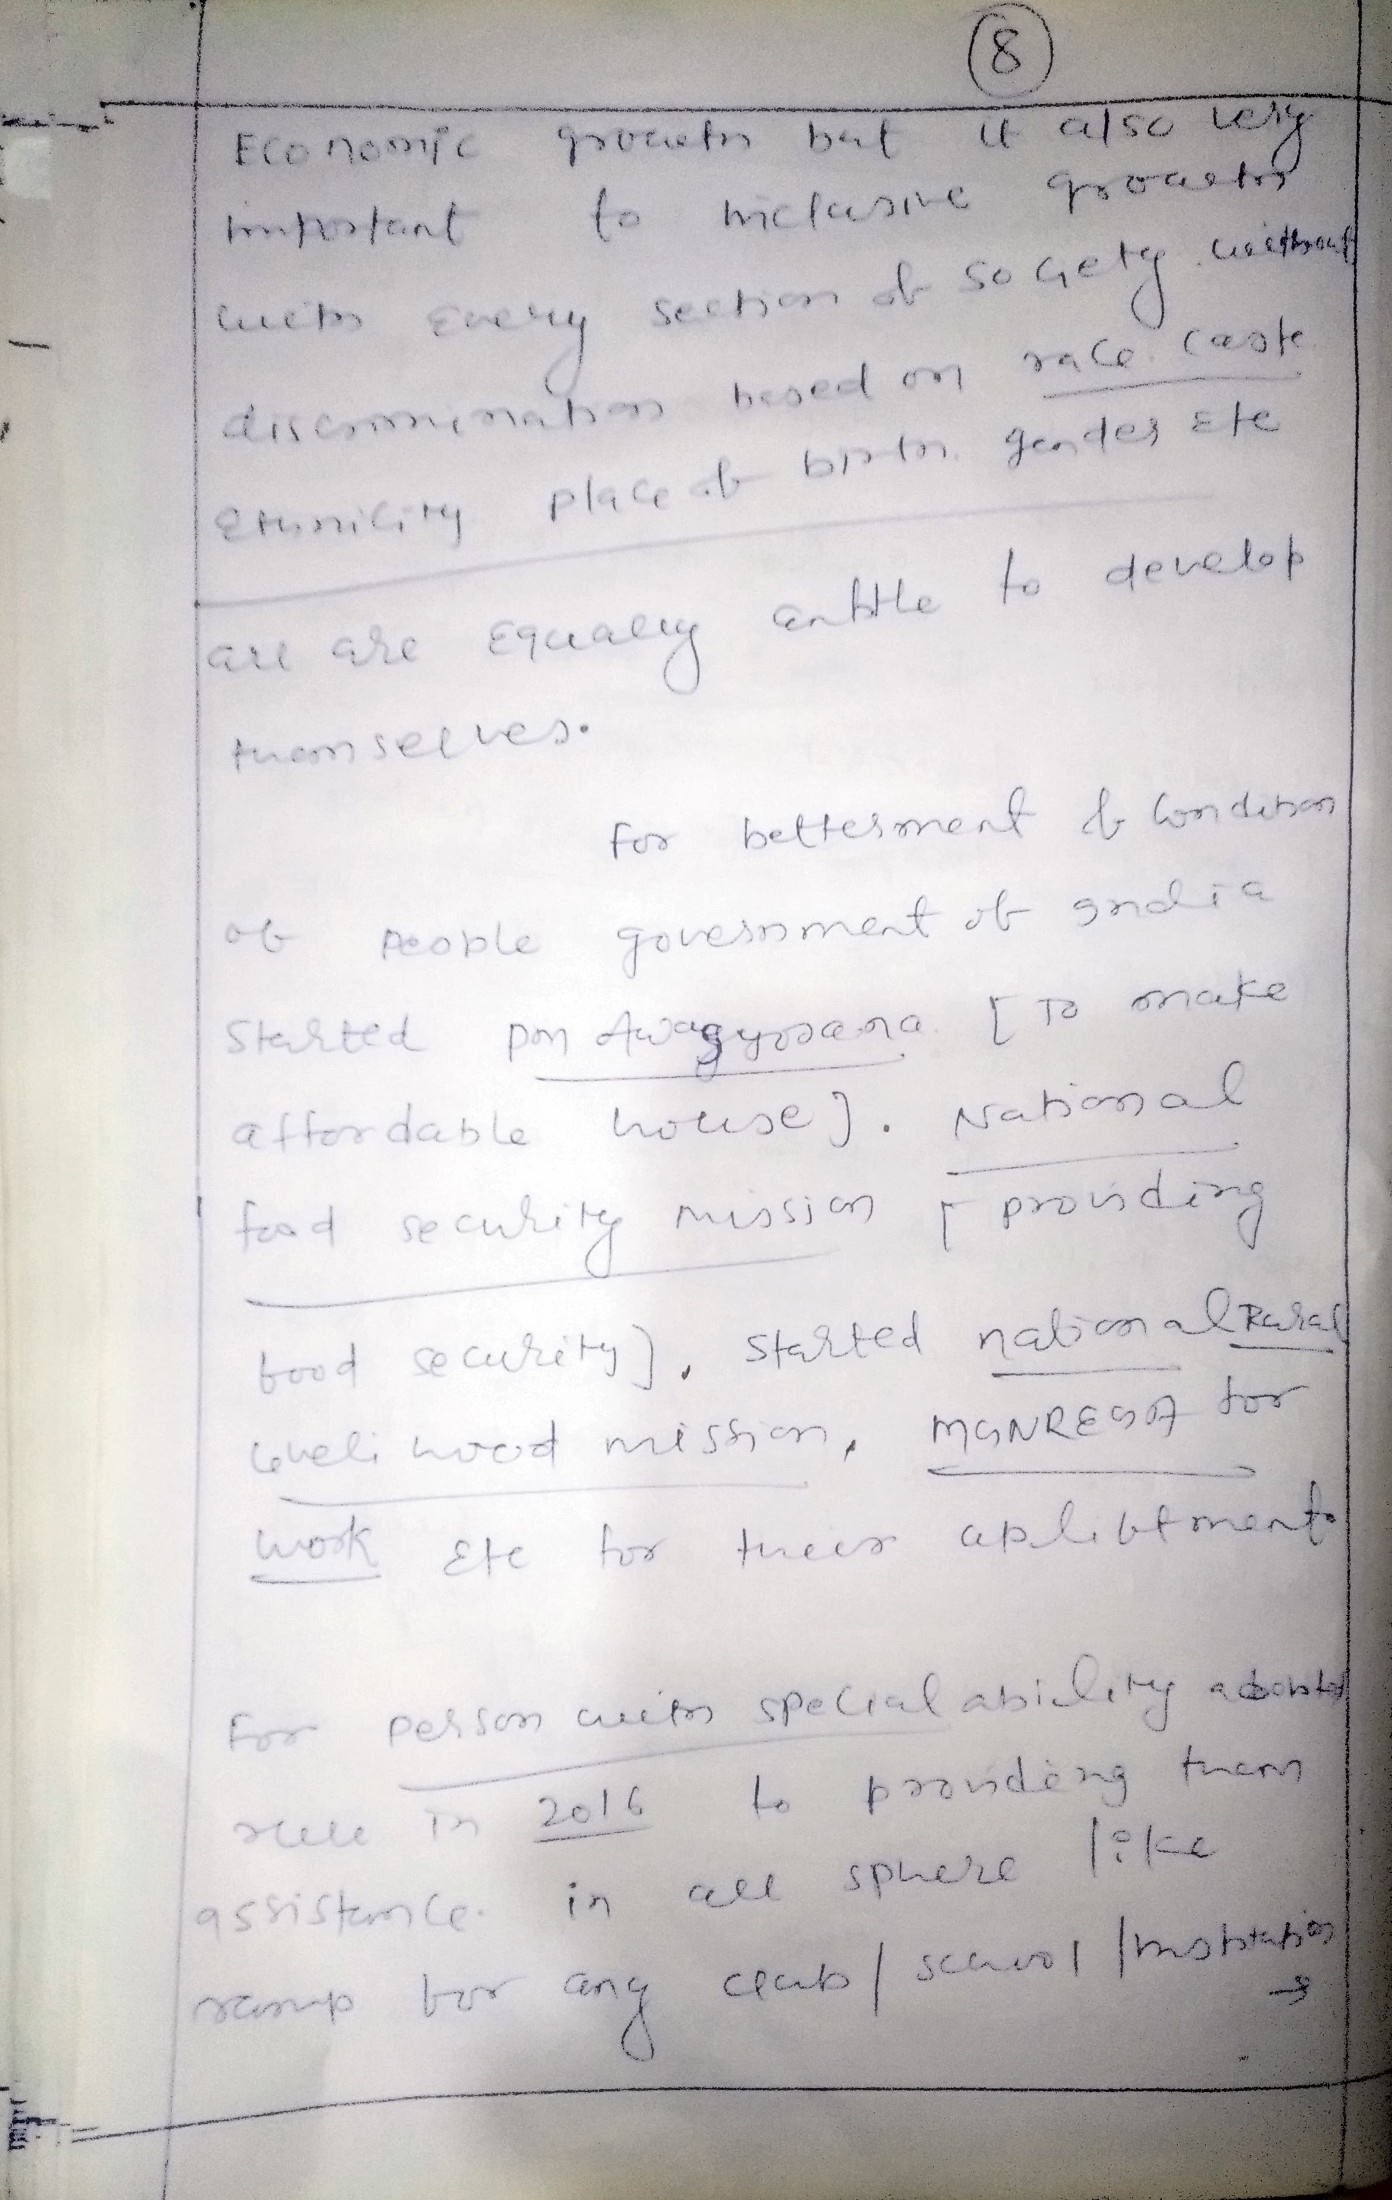 8
Economic growth but it also very
important to inclusive growth
with every section of society without
discrimination based on race caste
ethnicity place of birth gender Etc
all are Equally entitle to develop
themselves.
For betterment of condition
of people government of India
Started pm Awasyojana [To make
affordable house]. National
food security mission [providing
food security], started national Rural
livelihood mission, MGNREGA for
work Etc for their upliftment.
For person with special ability adopted
rule in 2016 to providing them
assistance. in all sphere like
ramp for any club / school / Institution
→